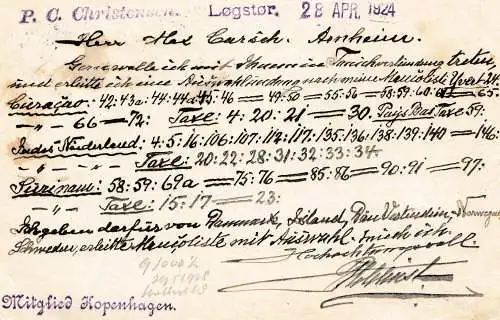 P. C. Christensen. Løgstør. 28 APR. 1924
Herr Alex Carsch. Arnheim.
Gerne wolle ich mit Ihnen in Tauschverbindung treten,
und erbitte ich eine Auswahlsendung nach meine Mancoliste Yvert 24.
Curaçao: 42=43a: 44=44a=45=46=49=50=55=56=58=59=60=65.
-"- 66-72: Taxe: 4=20=21=30. Pays Bas Taxe 59:
Indes Néderland: 4:5:16:106:107:112:117:135:136:138:139:140=146:
-"- Taxe: 20:22:28:31:32:33:34
Surinam: 58:59:69a=75=76=85=86=90=91=97:
-"- -"- Taxe: 15:17=23:
Ich geben darfür von Danmark, Island, Dän Vestindien, Norwegen
Schweden, erbitte Mancoliste mit Auswahl.
Hochachtungsvoll.
Mitglied Kopenhagen.